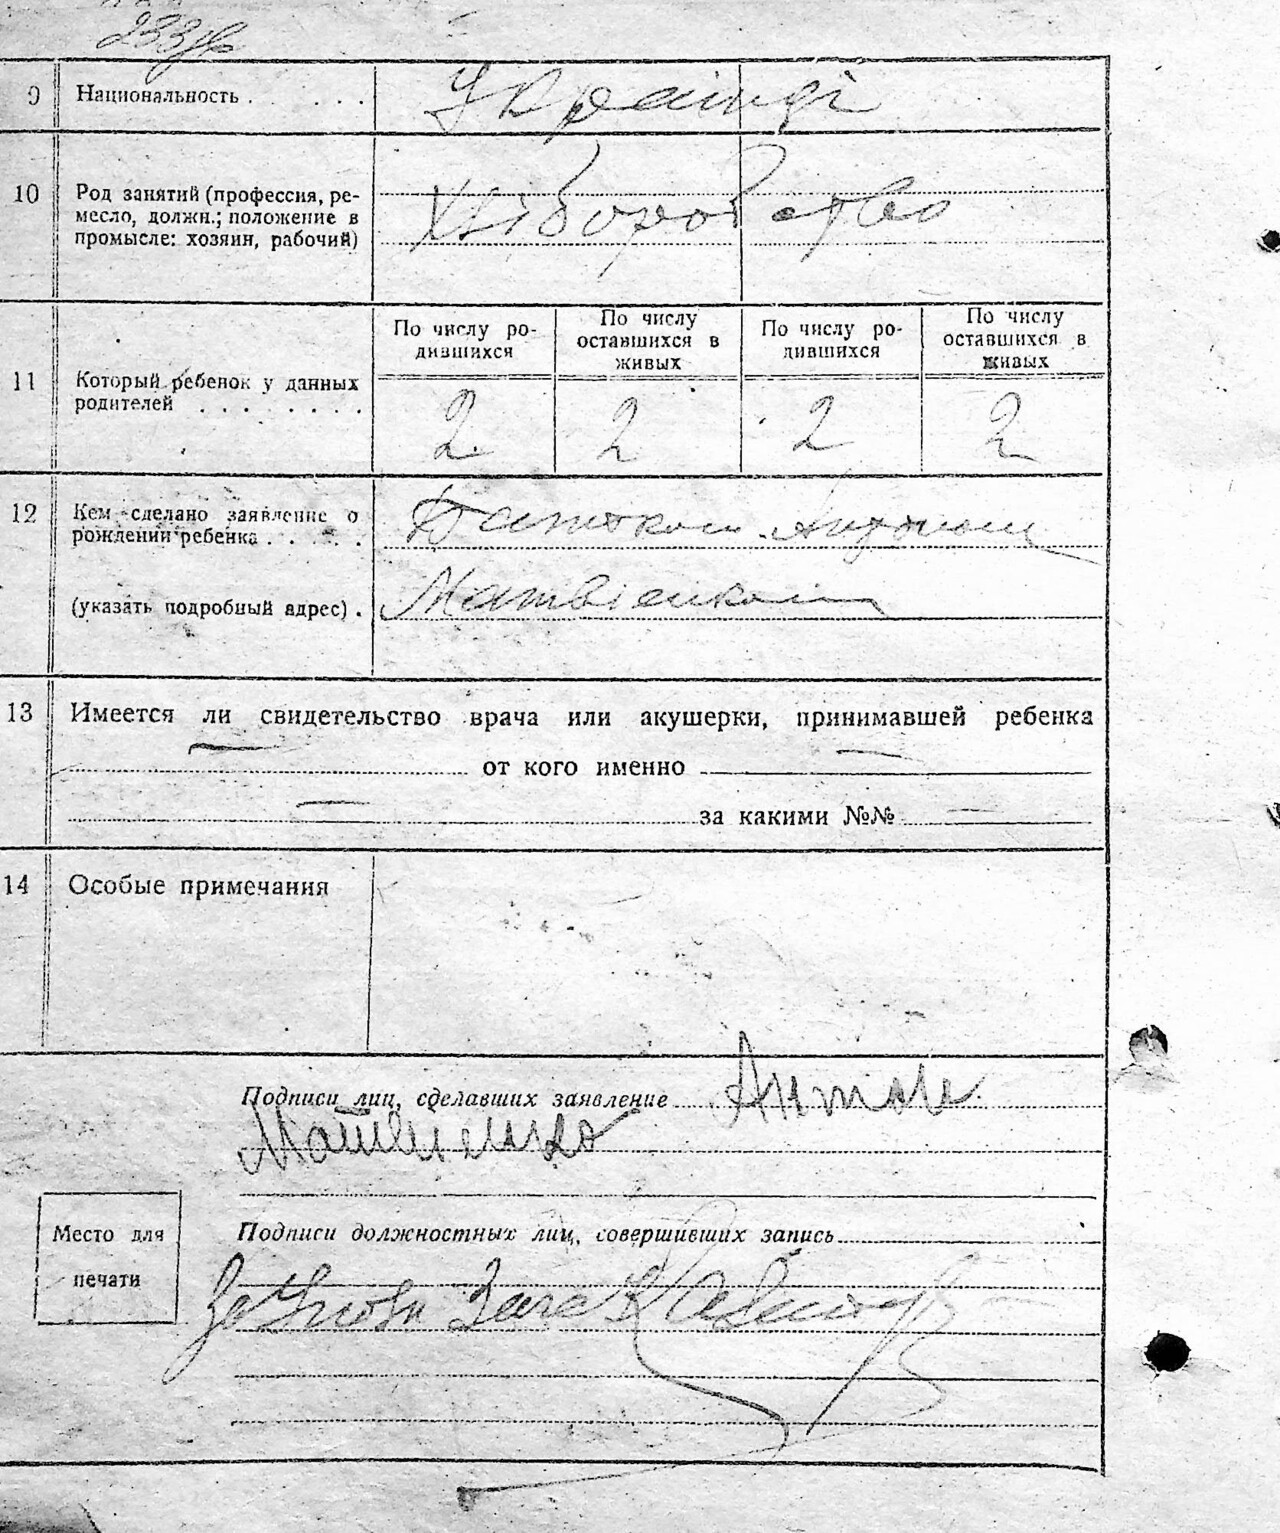 9 Национальность . . . . . . Українці
10 Род занятий (профессия, ре-
месло, должн.; положение в
промысле: хозяин, рабочий)
Хліборобство
По числу ро-
дившихся
По числу
оставшихся в
живых
По числу ро-
дившихся
По числу
оставшихся в
живых
11 Который ребенок у данных
родителей . . . . . . . .
2. 2 2 2
12 Кем сделано заявление о
рождении ребенка . . . . .
Батьком Антоном
(указать подробный адрес) . Матвієнком
13 Имеется ли свидетельство врача или акушерки, принимавшей ребенка
— от кого именно —
— за какими №№ —
14 Особые примечания
Подписи лиц, сделавших заявление Антон
Матвиенко
Место для
печати
Подписи должностных лиц, совершивших запись